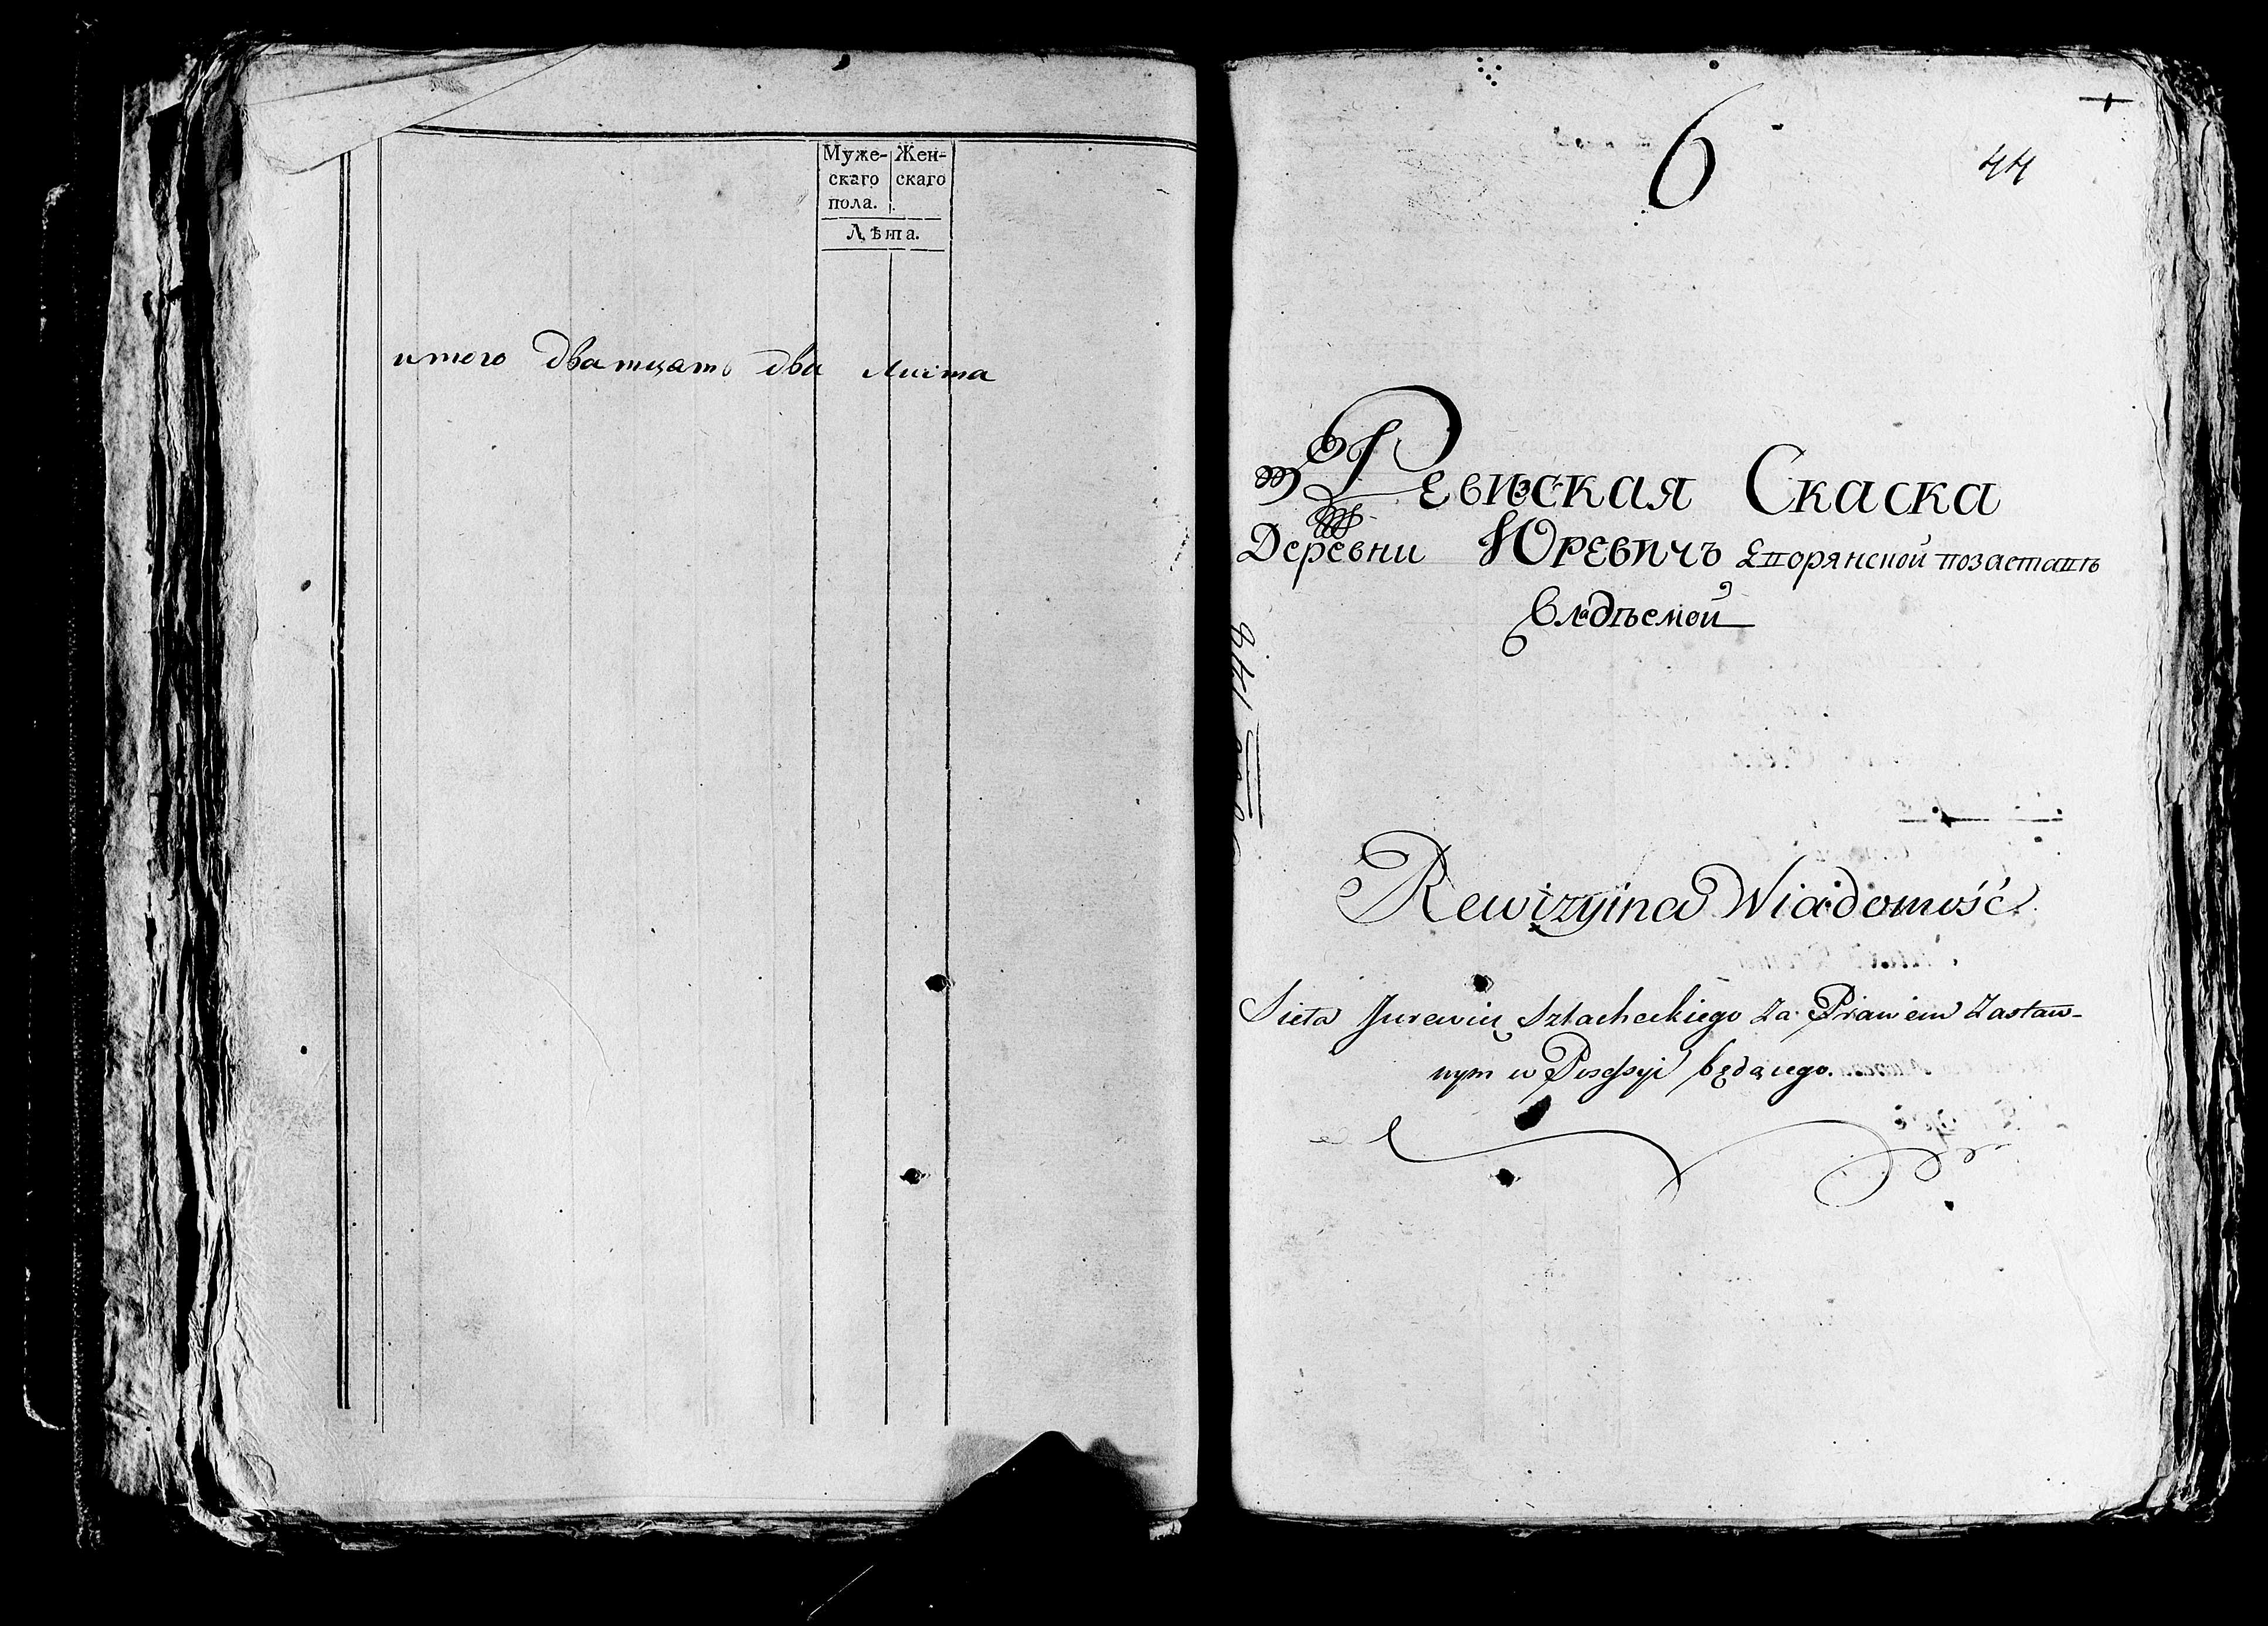 Муже-
скаго
пола.
Жен-
скаго
Лѣта.
итого дватцать два листа
6
44
Ревизская Скаска
Деревни Юревичъ
владѣемой
Rewizyina Wiadomość
Sieła Jurewicz Szlacheckiego Za Prawem Zastaw-
nym w Possessyi będącego.